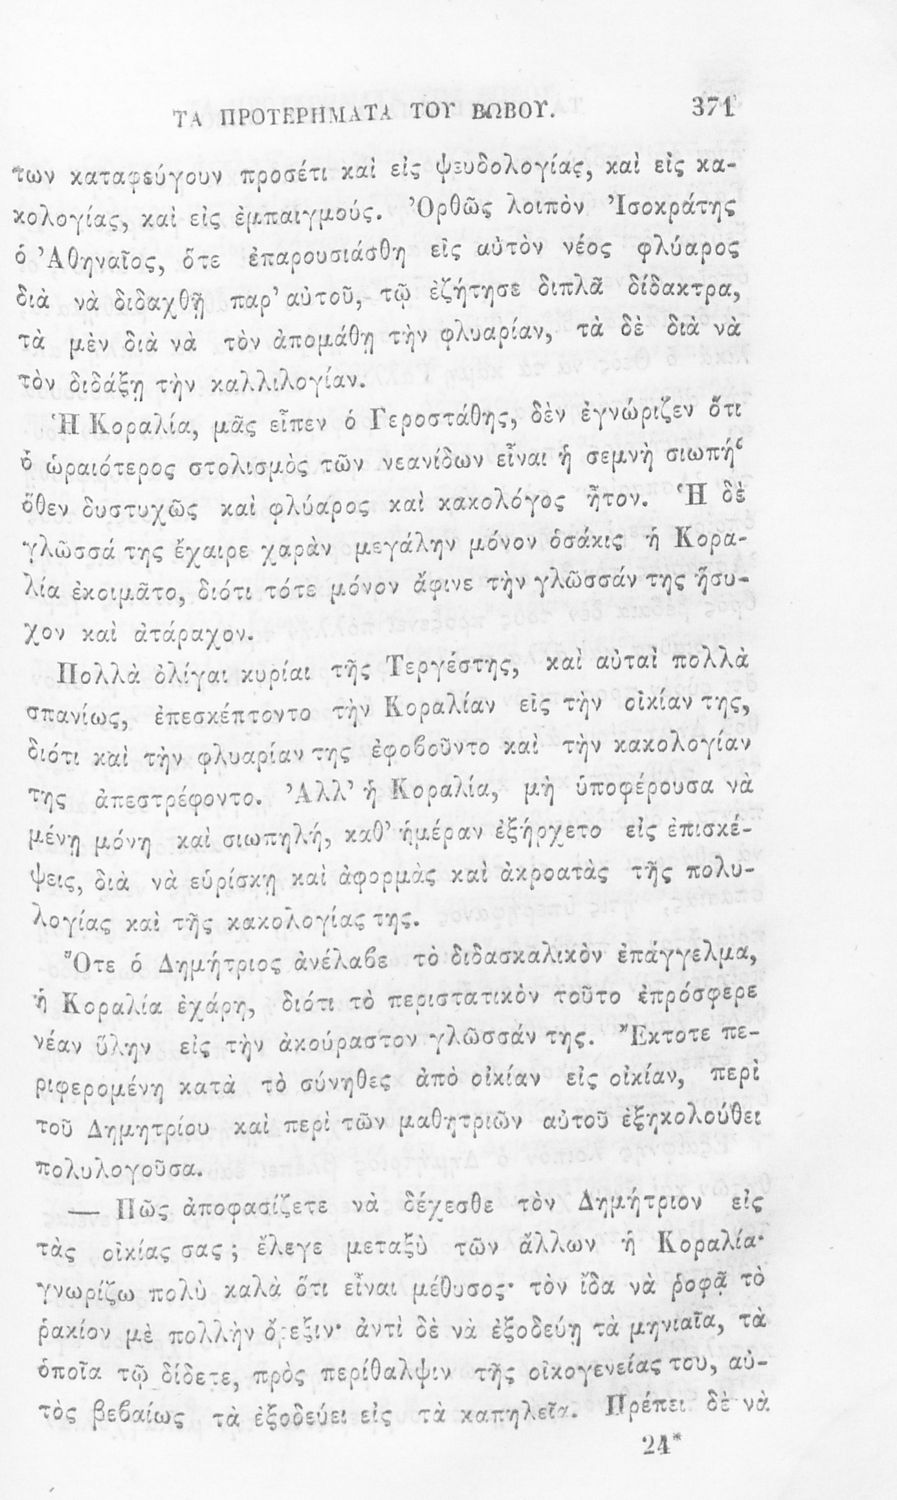 ΤΑ ΠΡΟΤΕΡΗΜΑΤΑ ΤΟΥ ΒΩΒΟΥ. 371
των καταφεύγουν προσέτι καὶ εἰς ψευδολογίας, καὶ εἰς κα-
κολογίας, καὶ εἰς ἐμπαιγμούς. Ὀρθῶς λοιπὸν Ἰσοκράτης
ὁ Ἀθηναῖος, ὅτε ἐπαρουσιάσθη εἰς αὐτὸν νέος φλύαρος
διὰ νὰ διδαχθῇ παρ' αὐτοῦ, τῷ ἐζήτησε διπλᾶ δίδακτρα,
τὰ μὲν διὰ νὰ τὸν ἀπομάθῃ τὴν φλυαρίαν, τὰ δὲ διὰ νὰ
τὸν διδάξῃ τὴν καλλιλογίαν.
Ἡ Κοραλία, μᾶς εἶπεν ὁ Γεροστάθης, δὲν ἐγνώριζεν ὅτι
ὁ ὡραιότερος στολισμὸς τῶν νεανίδων εἶναι ἡ σεμνὴ σιωπή·
ὅθεν δυστυχῶς καὶ φλύαρος καὶ κακολόγος ἦτον. Ἡ δὲ
γλῶσσά της ἔχαιρε χαρὰν μεγάλην μόνον ὁσάκις ἡ Κορα-
λία ἐκοιμᾶτο, διότι τότε μόνον ἄφινε τὴν γλῶσσάν της ἥσυ-
χον καὶ ἀτάραχον.
Πολλὰ ὀλίγαι κυρίαι τῆς Τεργέστης, καὶ αὐταὶ πολλὰ
σπανίως, ἐπεσκέπτοντο τὴν Κοραλίαν εἰς τὴν οἰκίαν της,
διότι καὶ τὴν φλυαρίαν της ἐφοβοῦντο καὶ τὴν κακολογίαν
της ἀπεστρέφοντο. Ἀλλ' ἡ Κοραλία, μὴ ὑποφέρουσα νὰ
μένῃ μόνη καὶ σιωπηλή, καθ' ἡμέραν ἐξήρχετο εἰς ἐπισκέ-
ψεις, διὰ νὰ εὑρίσκῃ καὶ ἀφορμὰς καὶ ἀκροατὰς τῆς πολυ-
λογίας καὶ τῆς κακολογίας της.
Ὅτε ὁ Δημήτριος ἀνέλαβε τὸ διδασκαλικὸν ἐπάγγελμα,
ἡ Κοραλία ἐχάρη, διότι τὸ περιστατικὸν τοῦτο ἐπρόσφερε
νέαν ὕλην εἰς τὴν ἀκούραστον γλῶσσάν της. Ἔκτοτε πε-
ριφερομένη κατὰ τὸ σύνηθες ἀπὸ οἰκίαν εἰς οἰκίαν, περὶ
τοῦ Δημητρίου καὶ περὶ τῶν μαθητριῶν αὐτοῦ ἐξηκολούθει
πολυλογοῦσα.
— Πῶς ἀποφασίζετε νὰ δέχεσθε τὸν Δημήτριον εἰς
τὰς οἰκίας σας; ἔλεγε μεταξὺ τῶν ἄλλων ἡ Κοραλία·
γνωρίζω πολὺ καλὰ ὅτι εἶναι μέθυσος· τὸν ἴδα νὰ ῥοφᾷ τὸ
ῥακίον μὲ πολλὴν ὄρεξιν· ἀντὶ δὲ νὰ ἐξοδεύῃ τὰ μηνιαῖα, τὰ
ὁποῖα τῷ δίδετε, πρὸς περίθαλψιν τῆς οἰκογενείας του, αὐ-
τὸς βεβαίως τὰ ἐξοδεύει εἰς τὰ καπηλεῖα. Πρέπει δὲ νὰ
24*